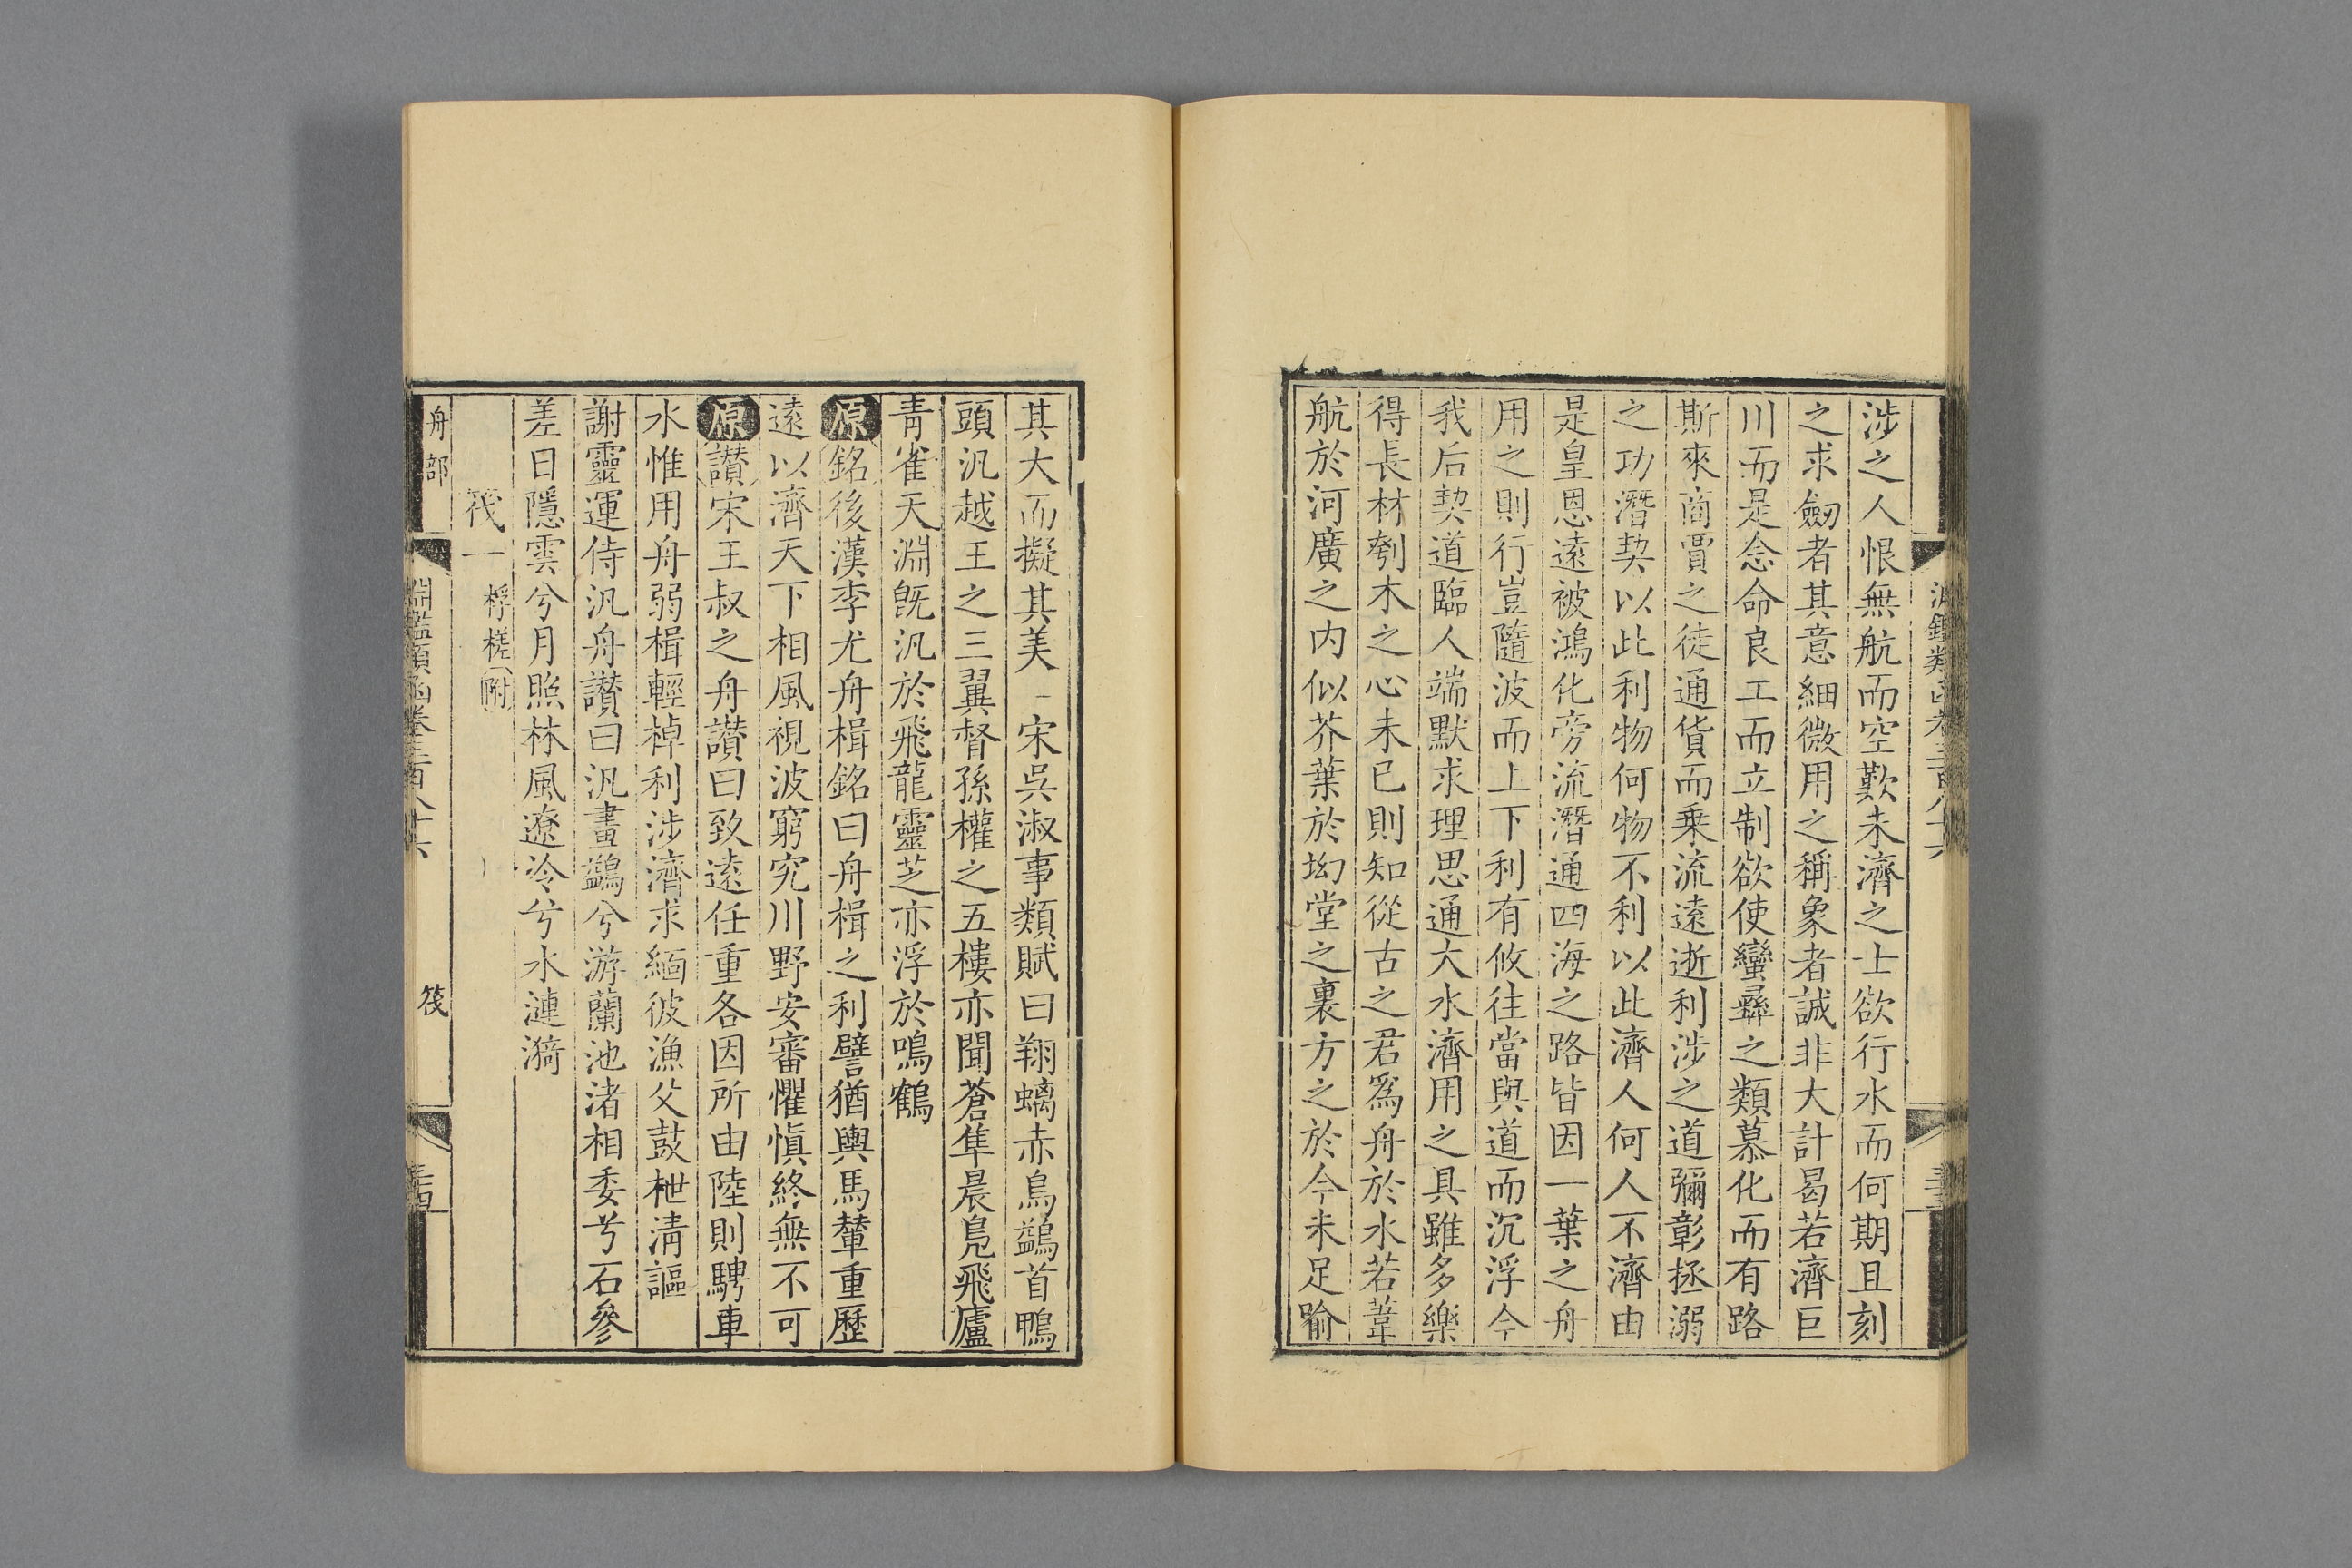 涉之人恨無航而空歎未濟之士欲行水而何期且刻
之求劒者其意細微用之稱象者誠非大計曷若濟巨
川而是念命良工而立制欲使蠻彝之類慕化而有路
斯來商賈之徒通貨而乗流遠逝利涉之道彌彰拯溺
之功潛契以此利物何物不利以此濟人何人不濟由
是皇恩遠被鴻化旁流潛通四海之路皆因一葉之舟
用之則行豈隨波而上下利有攸往當與道而沉浮今
我后契道臨人端默求理思通大水濟用之具雖多樂
得長材刳木之心未已則知從古之君爲舟於水若葦
航於河廣之内似芥葉於坳堂之裏方之於今未足踰
其大而擬其美 宋吳淑事類賦曰翔螭赤烏鷁首鴨
頭汎越王之三翼督孫權之五樓亦聞蒼隼晨鳧飛廬
青雀天淵旣汎於飛龍靈芝亦浮於鳴鶴
原銘後漢李尤舟楫銘曰舟楫之利譬猶輿馬輦重歷
遠以濟天下相風視波窮究川野安審懼愼終無不可
原讃宋王叔之舟讃曰致遠任重各因所由陸則騁車
水惟用舟弱楫輕棹利涉濟求緬彼漁父鼓枻淸謳
謝靈運侍汎舟讃曰汎畫鷁兮游蘭池渚相委兮石參
差日隱雲兮月照林風遼泠兮水漣漪
筏一 桴槎附
舟部 淵鑑類函卷三百八十六 筏 三十四